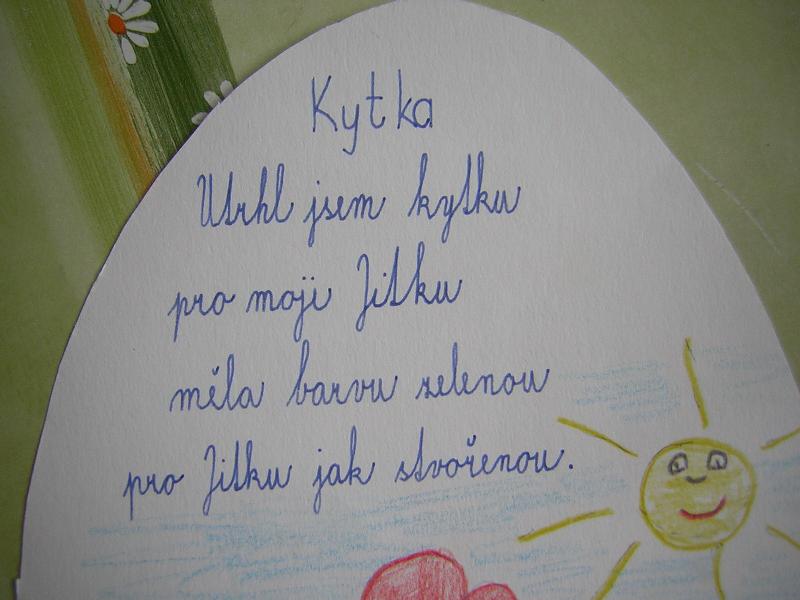 Kytka
Utrhl jsem kytku
pro moji Jitku
měla barvu zelenou
pro Jitku jak stvořenou.